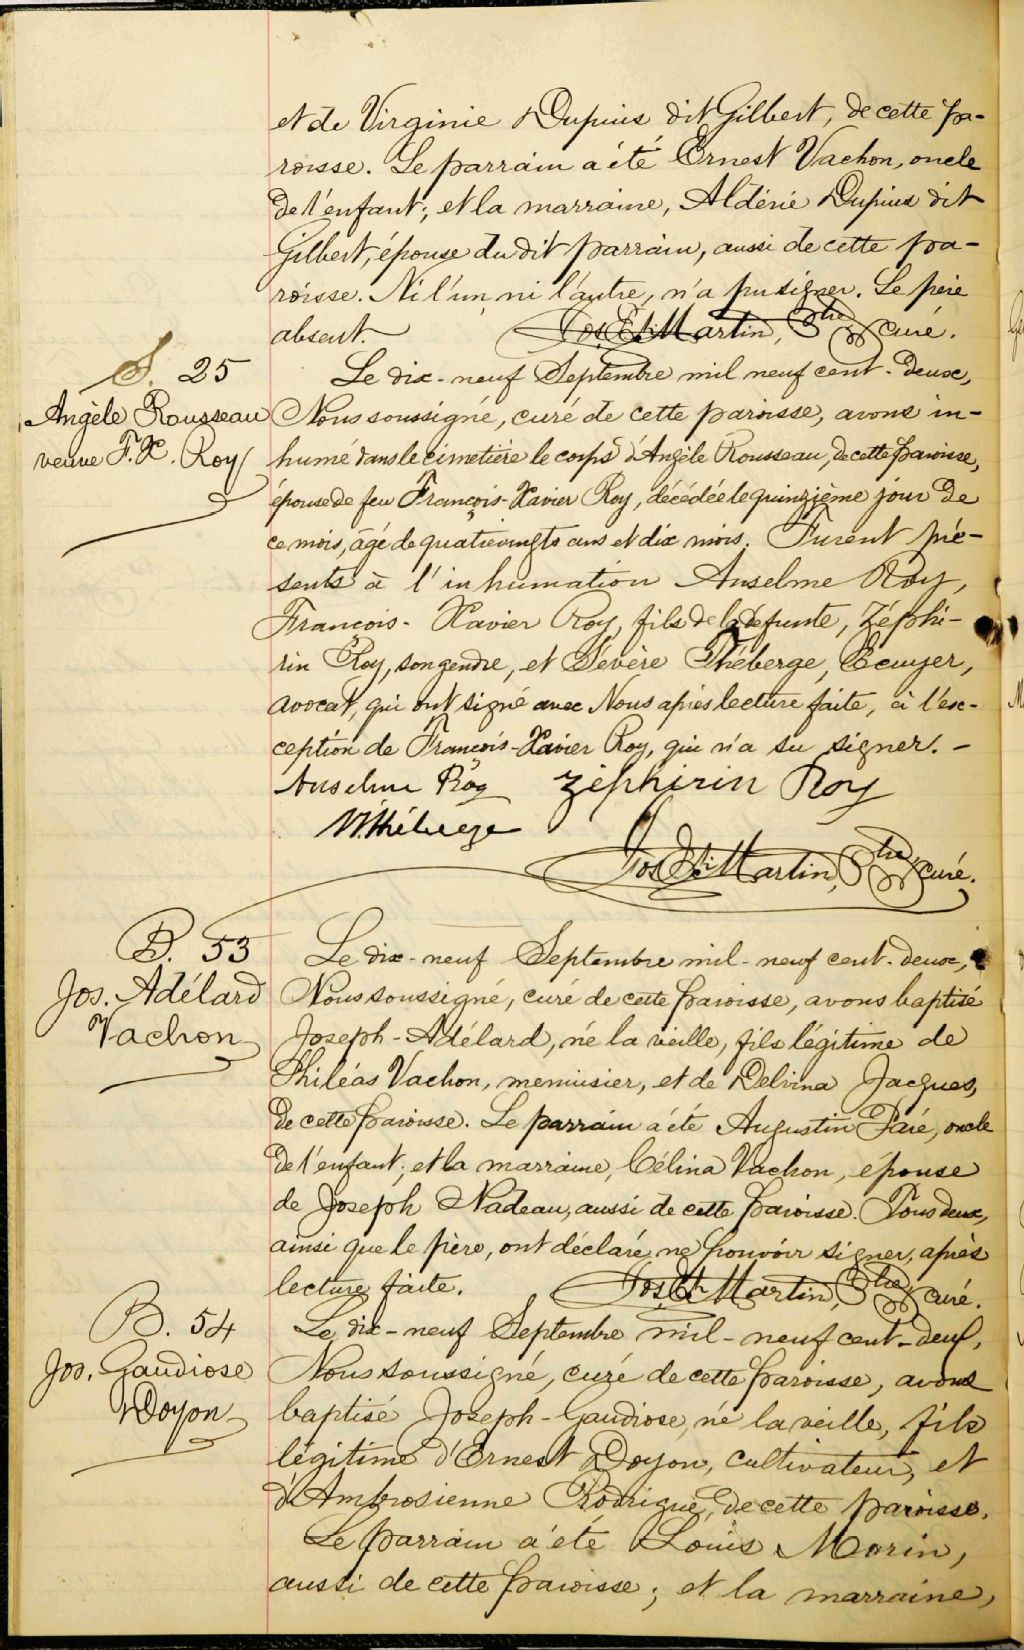 et de Virginie Dupuis dit Gilbert, de cette pa-
roisse. Le parrain a été Ernest Vachon, oncle
de l'enfant; et la marraine, Aldérie Dupuis dit
Gilbert, épouse du dit parrain, aussi de cette pa-
roisse. Ni l'un ni l'autre, n'a pu signer. Le père
absent. Jos. Martin, Ptre curé.
S. 25
Angèle Rousseau
veuve F. X. Roy
Le dix-neuf Septembre mil neuf cent-deux,
Nous soussigné, curé de cette paroisse, avons in-
humé dans le cimetière le corps d'Angèle Rousseau, de cette paroisse,
épouse de feu François-Xavier Roy, décédée le quinzième jour de
ce mois, âgé de quatrevingts ans et dix mois. Furent pré-
sents à l'inhumation Anselme Roy,
François-Xavier Roy, fils de la défunte, Zéphi-
rin Roy, son gendre, et Sévère Théberge, Ecuyer,
avocat, qui ont signé avec Nous après lecture faite, à l'ex-
ception de François-Xavier Roy, qui n'a su signer. -
Anselme Roy Zéphirin Roy
Théberge
Jos. Martin, Ptre, curé.
B. 53
Jos. Adélard
Vachon
Le dix-neuf Septembre mil-neuf cent-deux,
Nous soussigné, curé de cette paroisse, avons baptisé
Joseph-Adélard, né la vieille, fils légitime de
Philéas Vachon, menuisier, et de Delvina Jacques,
de cette paroisse. Le parrain a été Augustin Paré, oncle
de l'enfant; et la marraine, Célina Vachon, épouse
de Joseph Nadeau, aussi de cette paroisse. Tous deux,
ainsi que le père, ont déclaré ne pouvoir signer, après
lecture faite. Jos. Martin, Ptre, curé.
B. 54
Jos. Gaudiose
Doyon
Le dix-neuf Septembre mil-neuf cent-deux,
Nous soussigné, curé de cette paroisse, avons
baptisé Joseph-Gaudiose, né la veille, fils
légitime d'Ernest Doyon, cultivateur, et
d'Ambrosienne Rodrigue, de cette paroisse.
Le parrain a été Louis Morin,
aussi de cette paroisse; et la marraine,